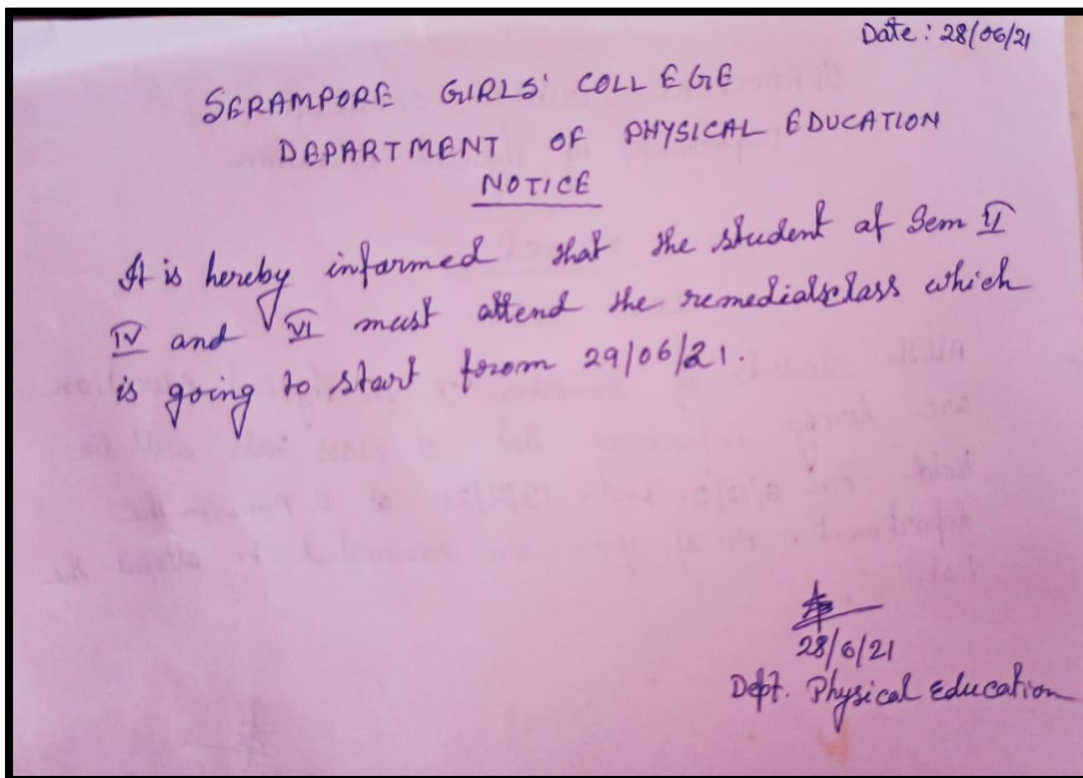 Date: 28/06/21
SERAMPORE GIRLS' COLLEGE
DEPARTMENT OF PHYSICAL EDUCATION
NOTICE
It is hereby informed that the student of Sem II
IV and VI must attend the remedial class which
is going to start forom 29/06/21.
28/6/21
Dept. Physical Education